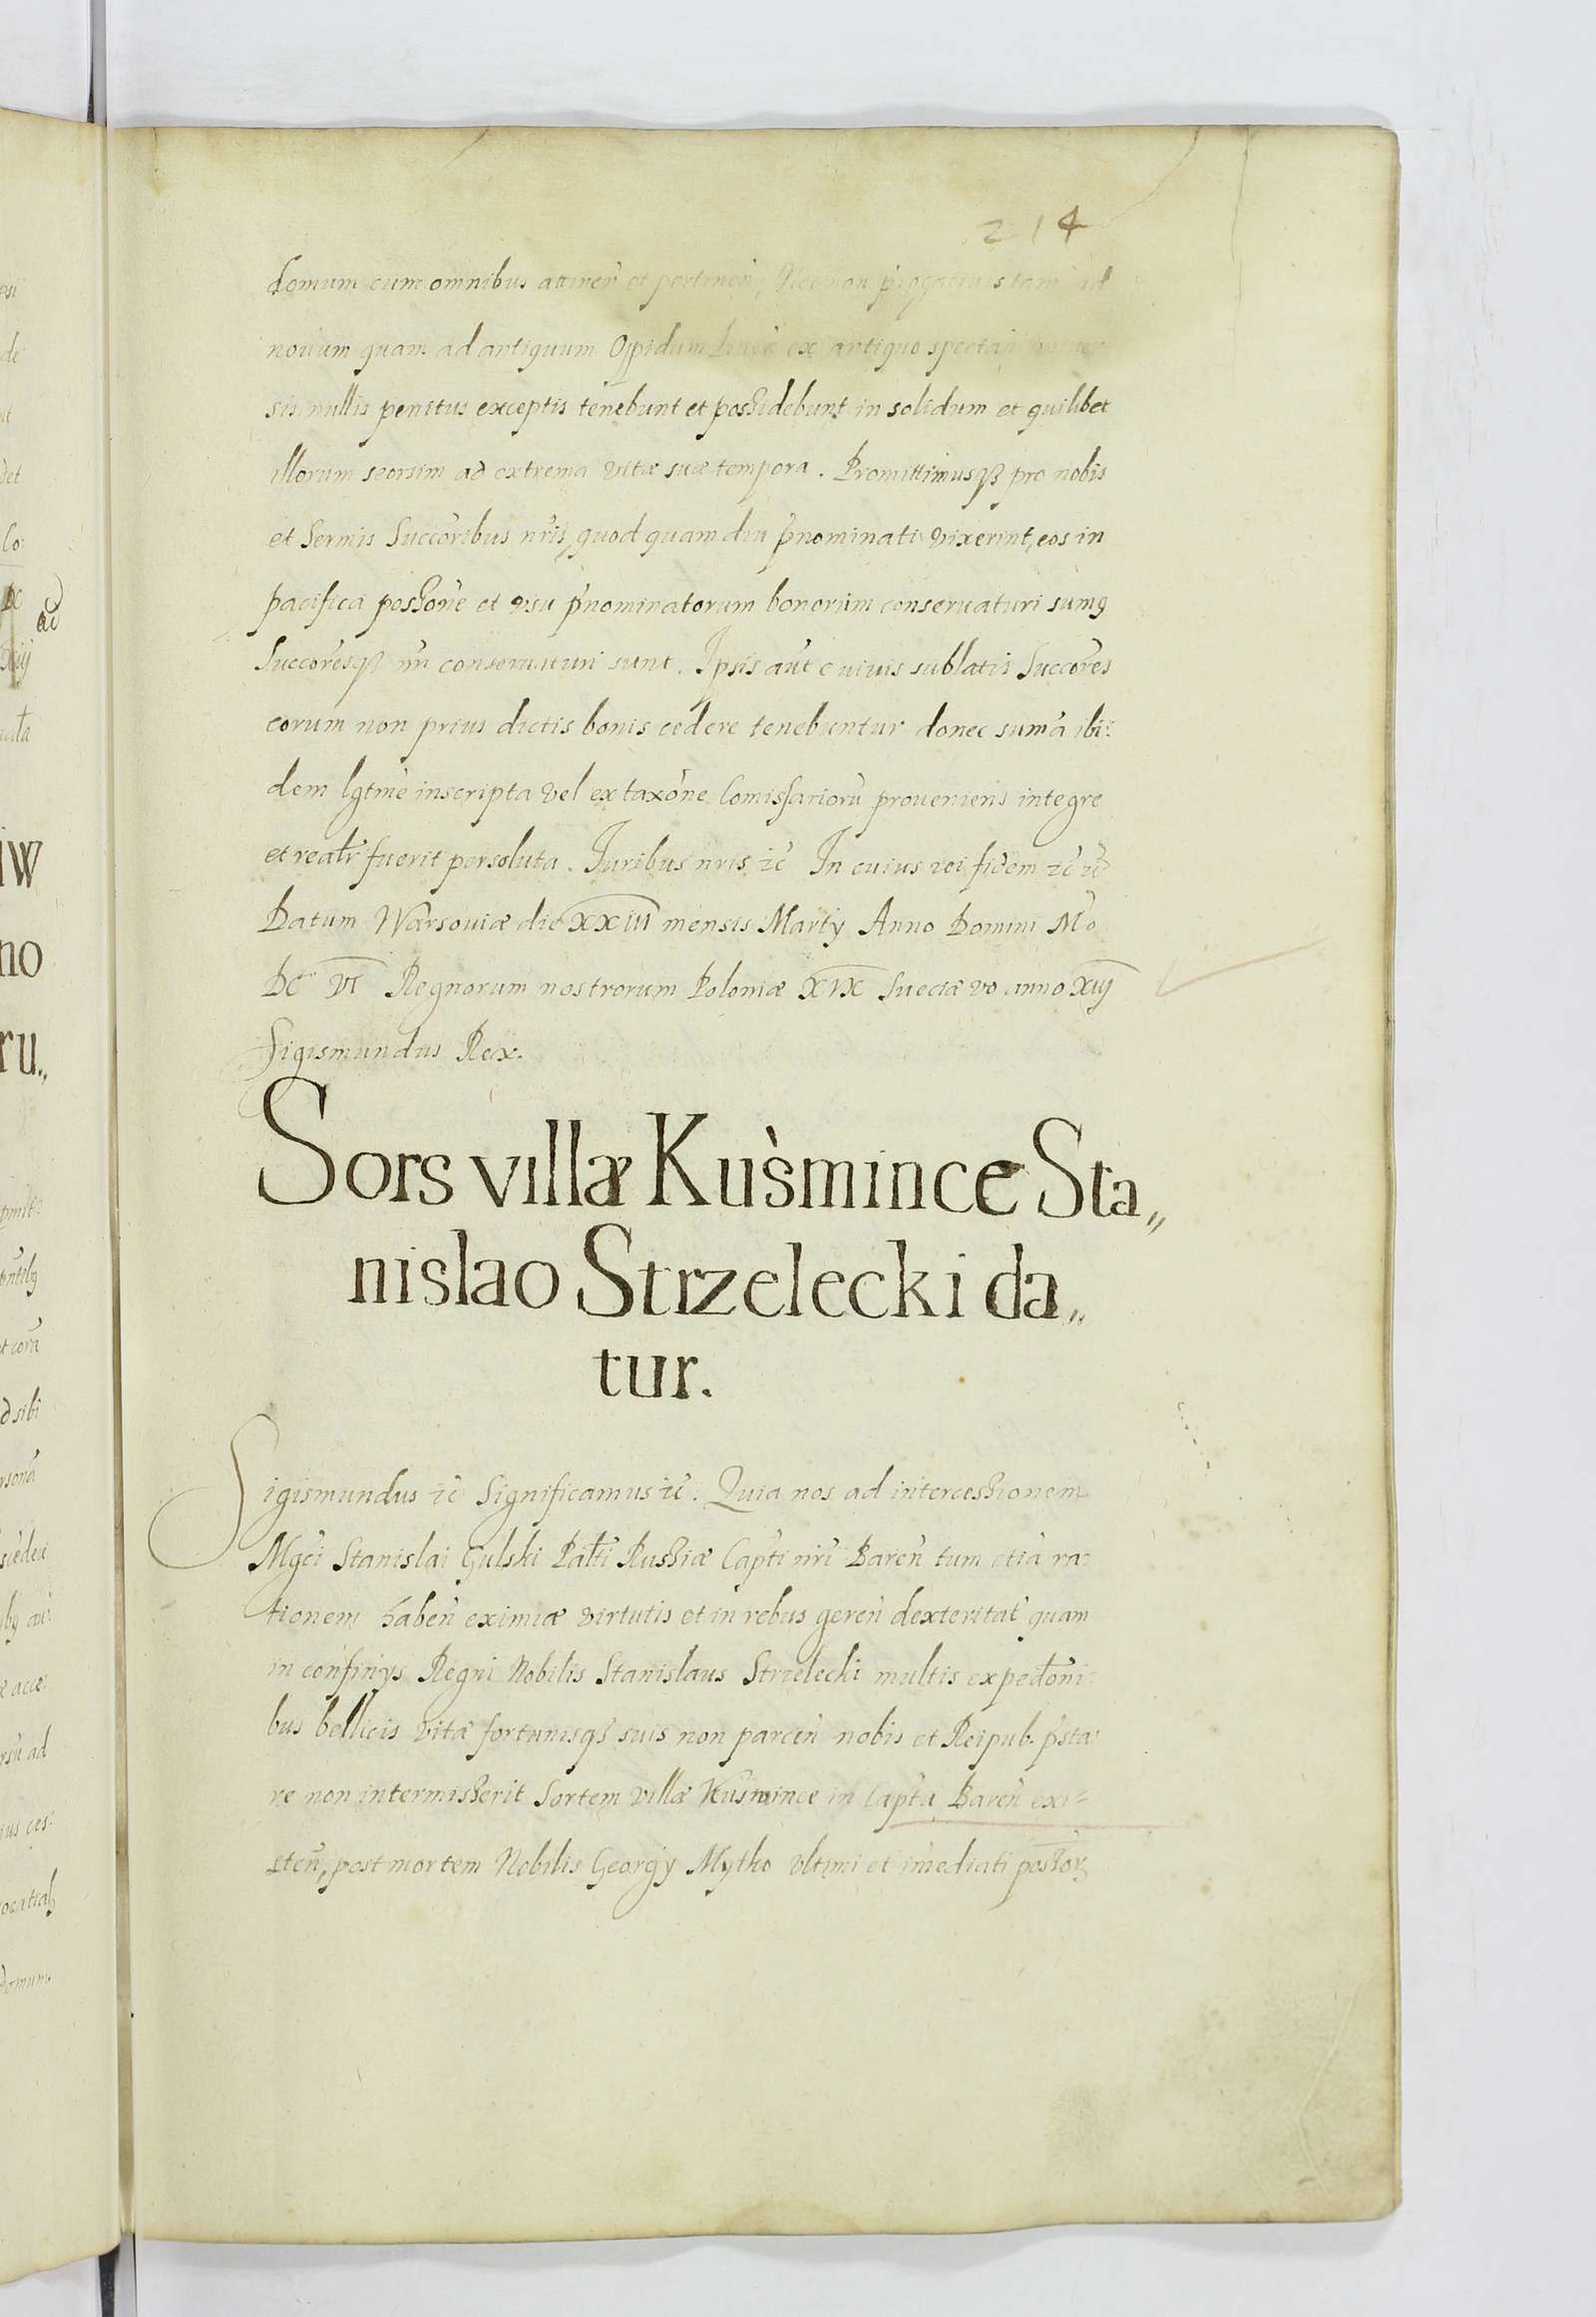 214
domum cum omnibus attinen̄ et pertinen̄, Nec non tam ad
nouum quam ad antiquum Oppidum ex antiquo spectan̄
sis nullis penitus exceptis tenebunt et possidebunt in solidum et quilibet
illorum seorsim ad extrema vitæ suæ tempora. Promittimusq₃ pro nobis
et Sermis Succoribus nr̄is, quod quam diu p̄nominati vixerint, eos in
pacifica possōne et vsu p̄nominatorum bonorum conseruaturi sumꝰ
Succoresq₃ nr̄i conseruaturi sunt. Ipsis aūt e viuis sublatis Succōres
eorum non prius dictis bonis cedere tenebuntur donec sum̄a ibi:
dem lgtme inscripta vel ex taxōne Comissariorū proueniens integre
et realr̄ fuerit persoluta. Iuribus nr̄is, ꝛc̄ In cuius rei fidem ꝛc̄ ꝛc̄
Datum Warsouiæ die XXIII mensis Martÿ Anno Domini Mo
DC VI Regnorum nostrorum Poloniæ XIX Sueciæ vo anno XIIJ
Sigismundus Rex.
Sors villæ Kuśmince Sta„
nislao Strzelecki da„
tur.
Sigismundus ꝛc̄ Significamus ꝛc̄. Quia nos ad intercessionem
Mgci Stanislai Gulski Palti Russiæ Capti nr̄i Baren̄ tum etiā ra:
tionem haben̄ eximiæ virtutis et in rebus geren̄ dexteritat̄ quam
in confinÿs Regni Nobilis Stanislaus Strzelecki multis expedōni:
bus bellicis vita fortunisq₃ suis non parcen̄ nobis et Reipub. p̄sta:
re non intermisserit Sortem villæ Kuśmince in Captu Baren̄ exi=
sten̄, post mortem Nobilis Georgÿ Mytko vltimi et im̄ediati possor̄